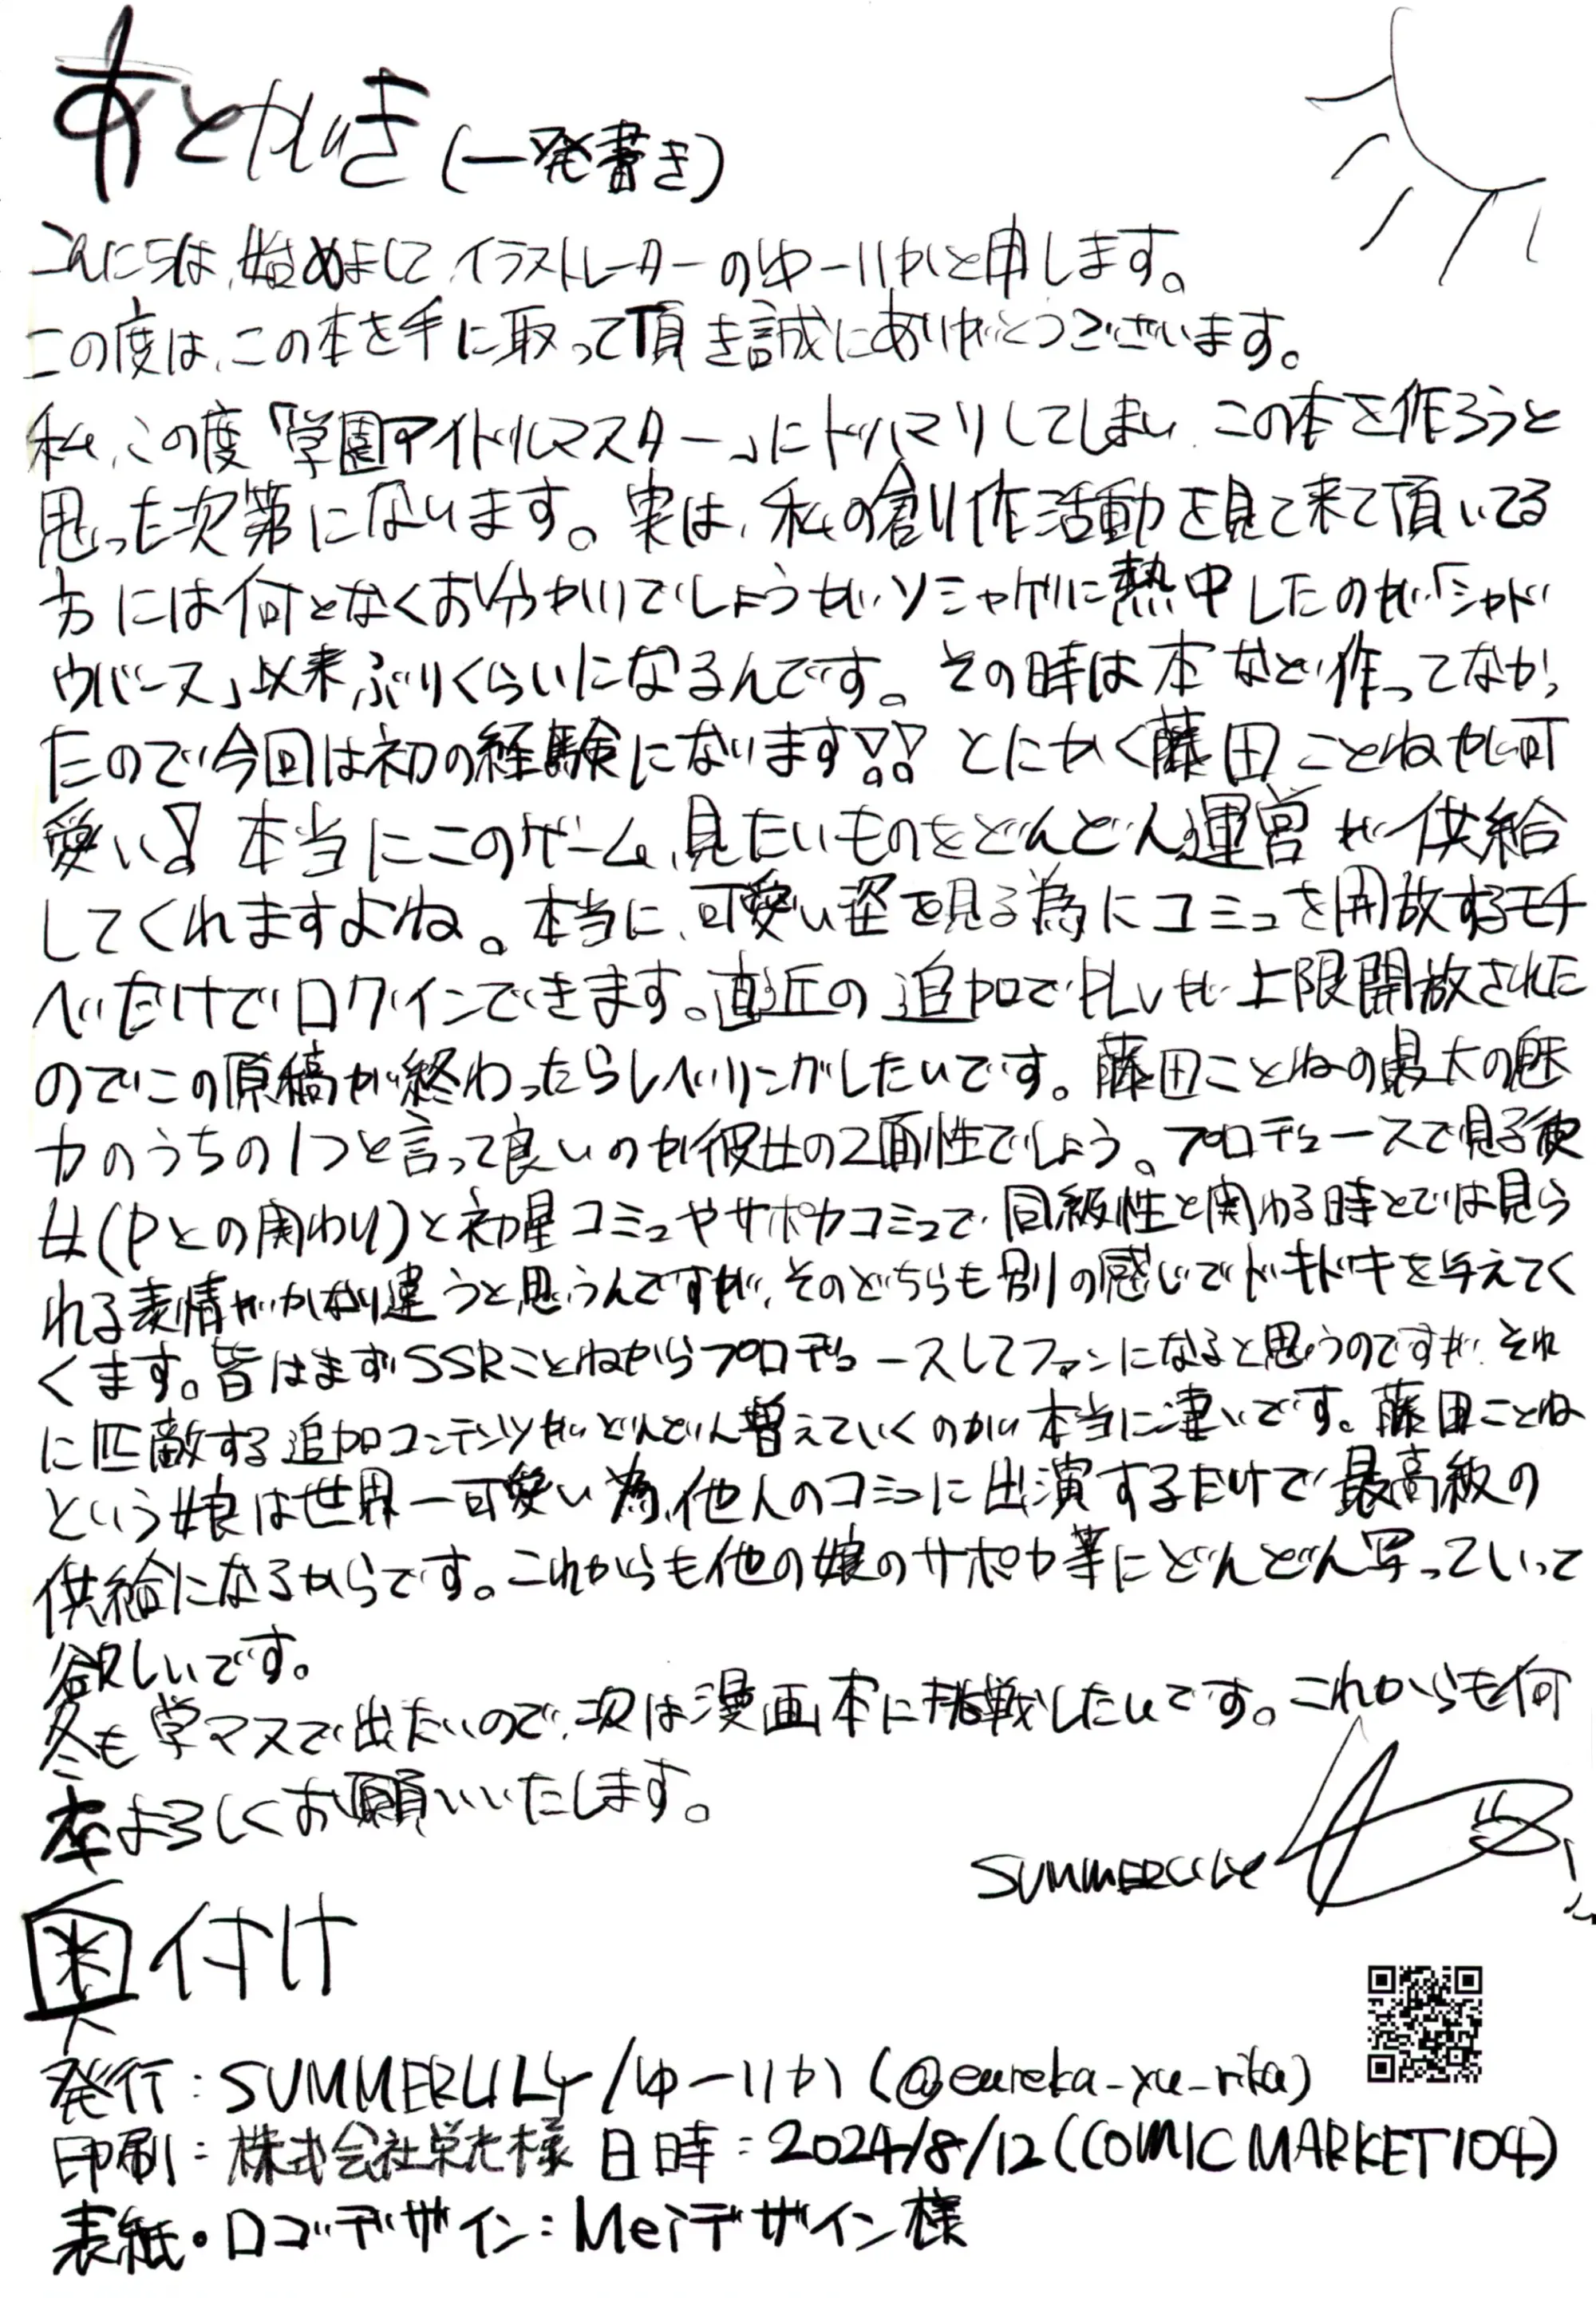 あとがき(一発書き)
こんにちは、始めまして、イラストレーターのゆーりかと申します。
この度は、この本を手に取って頂き誠にありがとうございます。
私、この度「学園アイドルマスター」にドハマリしてしまい、この本を作ろうと
思った次第になります。実は、私の創作活動を見て来て頂いてる
方には何となくお分かりでしょうがソシャゲに熱中したのが「シャド
ウバース」以来ぶりくらいになるんです。その時は本など作ってなかっ
たので今回は初の経験になります!! とにかく藤田ことねが可
愛い! 本当にこのゲーム、見たいものをどんどん運営が供給
してくれますよね。本当に、可愛い姿を見る為にコミュを開放するモチ
ベだけでログインできます。直近の追加でPLvが上限開放された
のでこの原稿が終わったらレベリングしたいです。藤田ことねの最大の魅
力のうちの1つと言って良いのが彼女の2面性でしょう。プロデュースで見る彼
女(Pとの関わり)と初星コミュやサポカコミュで同級性と関わる時とでは見ら
れる表情がかなり違うと思うんですが、そのどちらも別の感じでドキドキを与えてく
くます。皆はまずSSRことねからプロデュースしてファンになると思うのですが、それ
に匹敵する追加コンテンツがどんどん増えていくのが本当に凄いです。藤田ことね
という娘は世界一可愛い為、他人のコミュに出演するだけで最高級の
供給になるからです。これからも他の娘のサポカ等にどんどん写っていって
欲しいです。
冬も学マスで出たいので、次は漫画本に挑戦したいです。これからも何
卒よろしくお願いいたします。
SUMMERLILY
奥付け
発行:SUMMERLILY/ゆーりか(@eureka_yu_rika)
印刷:株式会社栄光様 日時:2024/8/12(COMIC MARKET104)
表紙・ロゴデザイン:Meiデザイン様